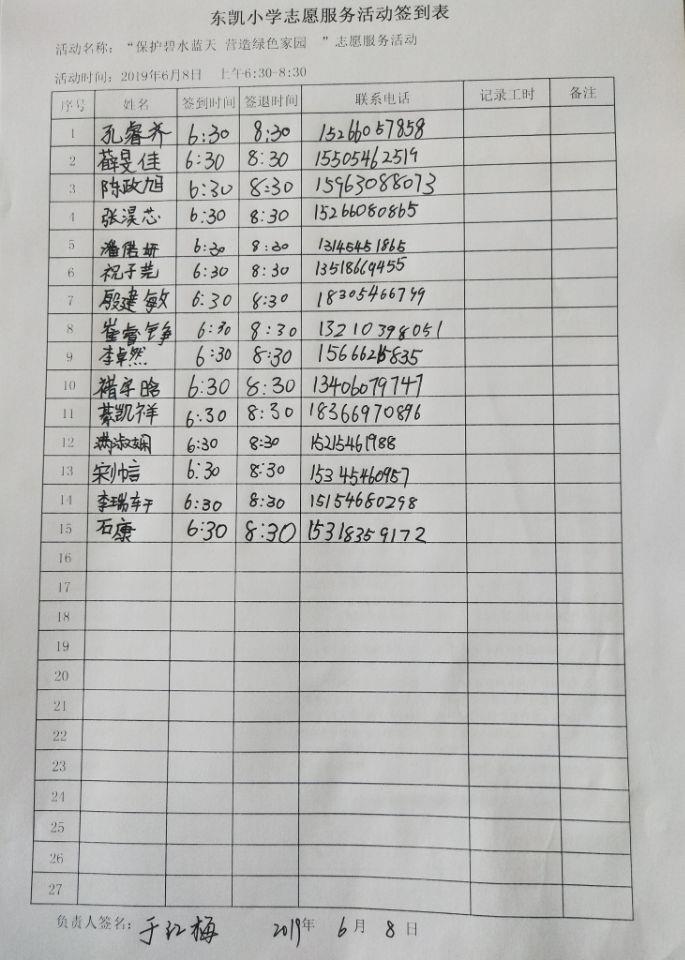 东凯小学志愿服务活动签到表
活动名称：“保护碧水蓝天 营造绿色家园 ”志愿服务活动
活动时间：2019年6月8日 上午6:30-8:30
序号 姓名 签到时间 签退时间 联系电话 记录工时 备注
1 孔睿齐 6:30 8:30 15266057858
2 薛旻佳 6:30 8:30 15505462519
3 陈政旭 6:30 8:30 15963088073
4 张淏芯 6:30 8:30 15266080865
5 潘 妍 6:30 8:30 13145451865
6 祝子芫 6:30 8:30 13518669455
7 殷建敏 6:30 8:30 18305466799
8 崔睿铮 6:30 8:30 13210398051
9 李卓然 6:30 8:30
10 褚宇晗 6:30 8:30 13406079747
11 綦凯祥 6:30 8:30 18366970896
12 满淑娴 6:30 8:30 15215461988
13 宋 言 6:30 8:30 15345460957
14 李瑞轩 6:30 8:30 15154680298
15 石康 6:30 8:30 15318359172
16
17
18
19
20
21
22
23
24
25
26
27
负责人签名：于红梅 2019年 6月 8日